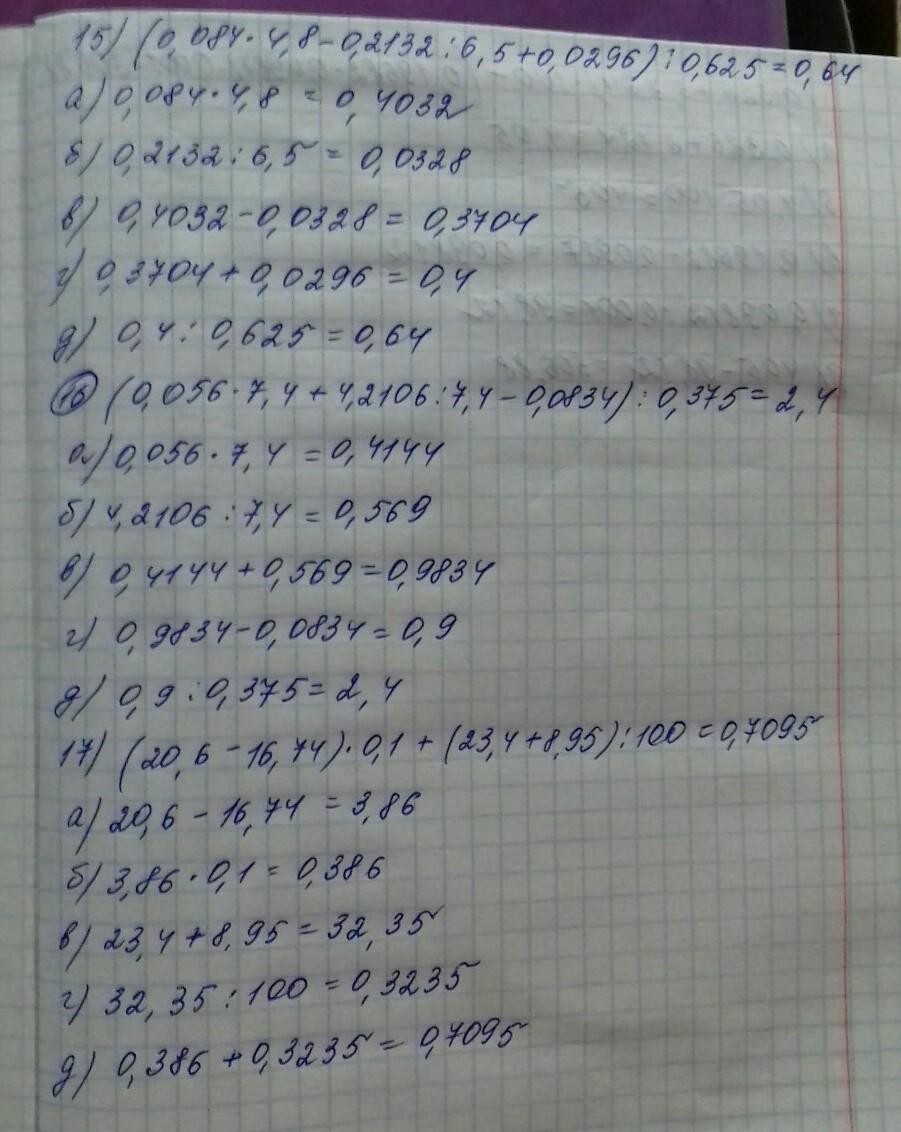 15) (0,084·4,8-0,2132:6,5+0,0296):0,625=0,64
а) 0,084·4,8=0,4032
б) 0,2132:6,5=0,0328
в) 0,4032-0,0328=0,3704
г) 0,3704+0,0296=0,4
д) 0,4:0,625=0,64
16 (0,056·7,4+4,2106:7,4-0,0834):0,375=2,4
а) 0,056·7,4=0,4144
б) 4,2106:7,4=0,569
в) 0,4144+0,569=0,9834
г) 0,9834-0,0834=0,9
д) 0,9:0,375=2,4
17) (20,6-16,74)·0,1+(23,4+8,95):100=0,7095
а) 20,6-16,74=3,86
б) 3,86·0,1=0,386
в) 23,4+8,95=32,35
г) 32,35:100=0,3235
д) 0,386+0,3235=0,7095